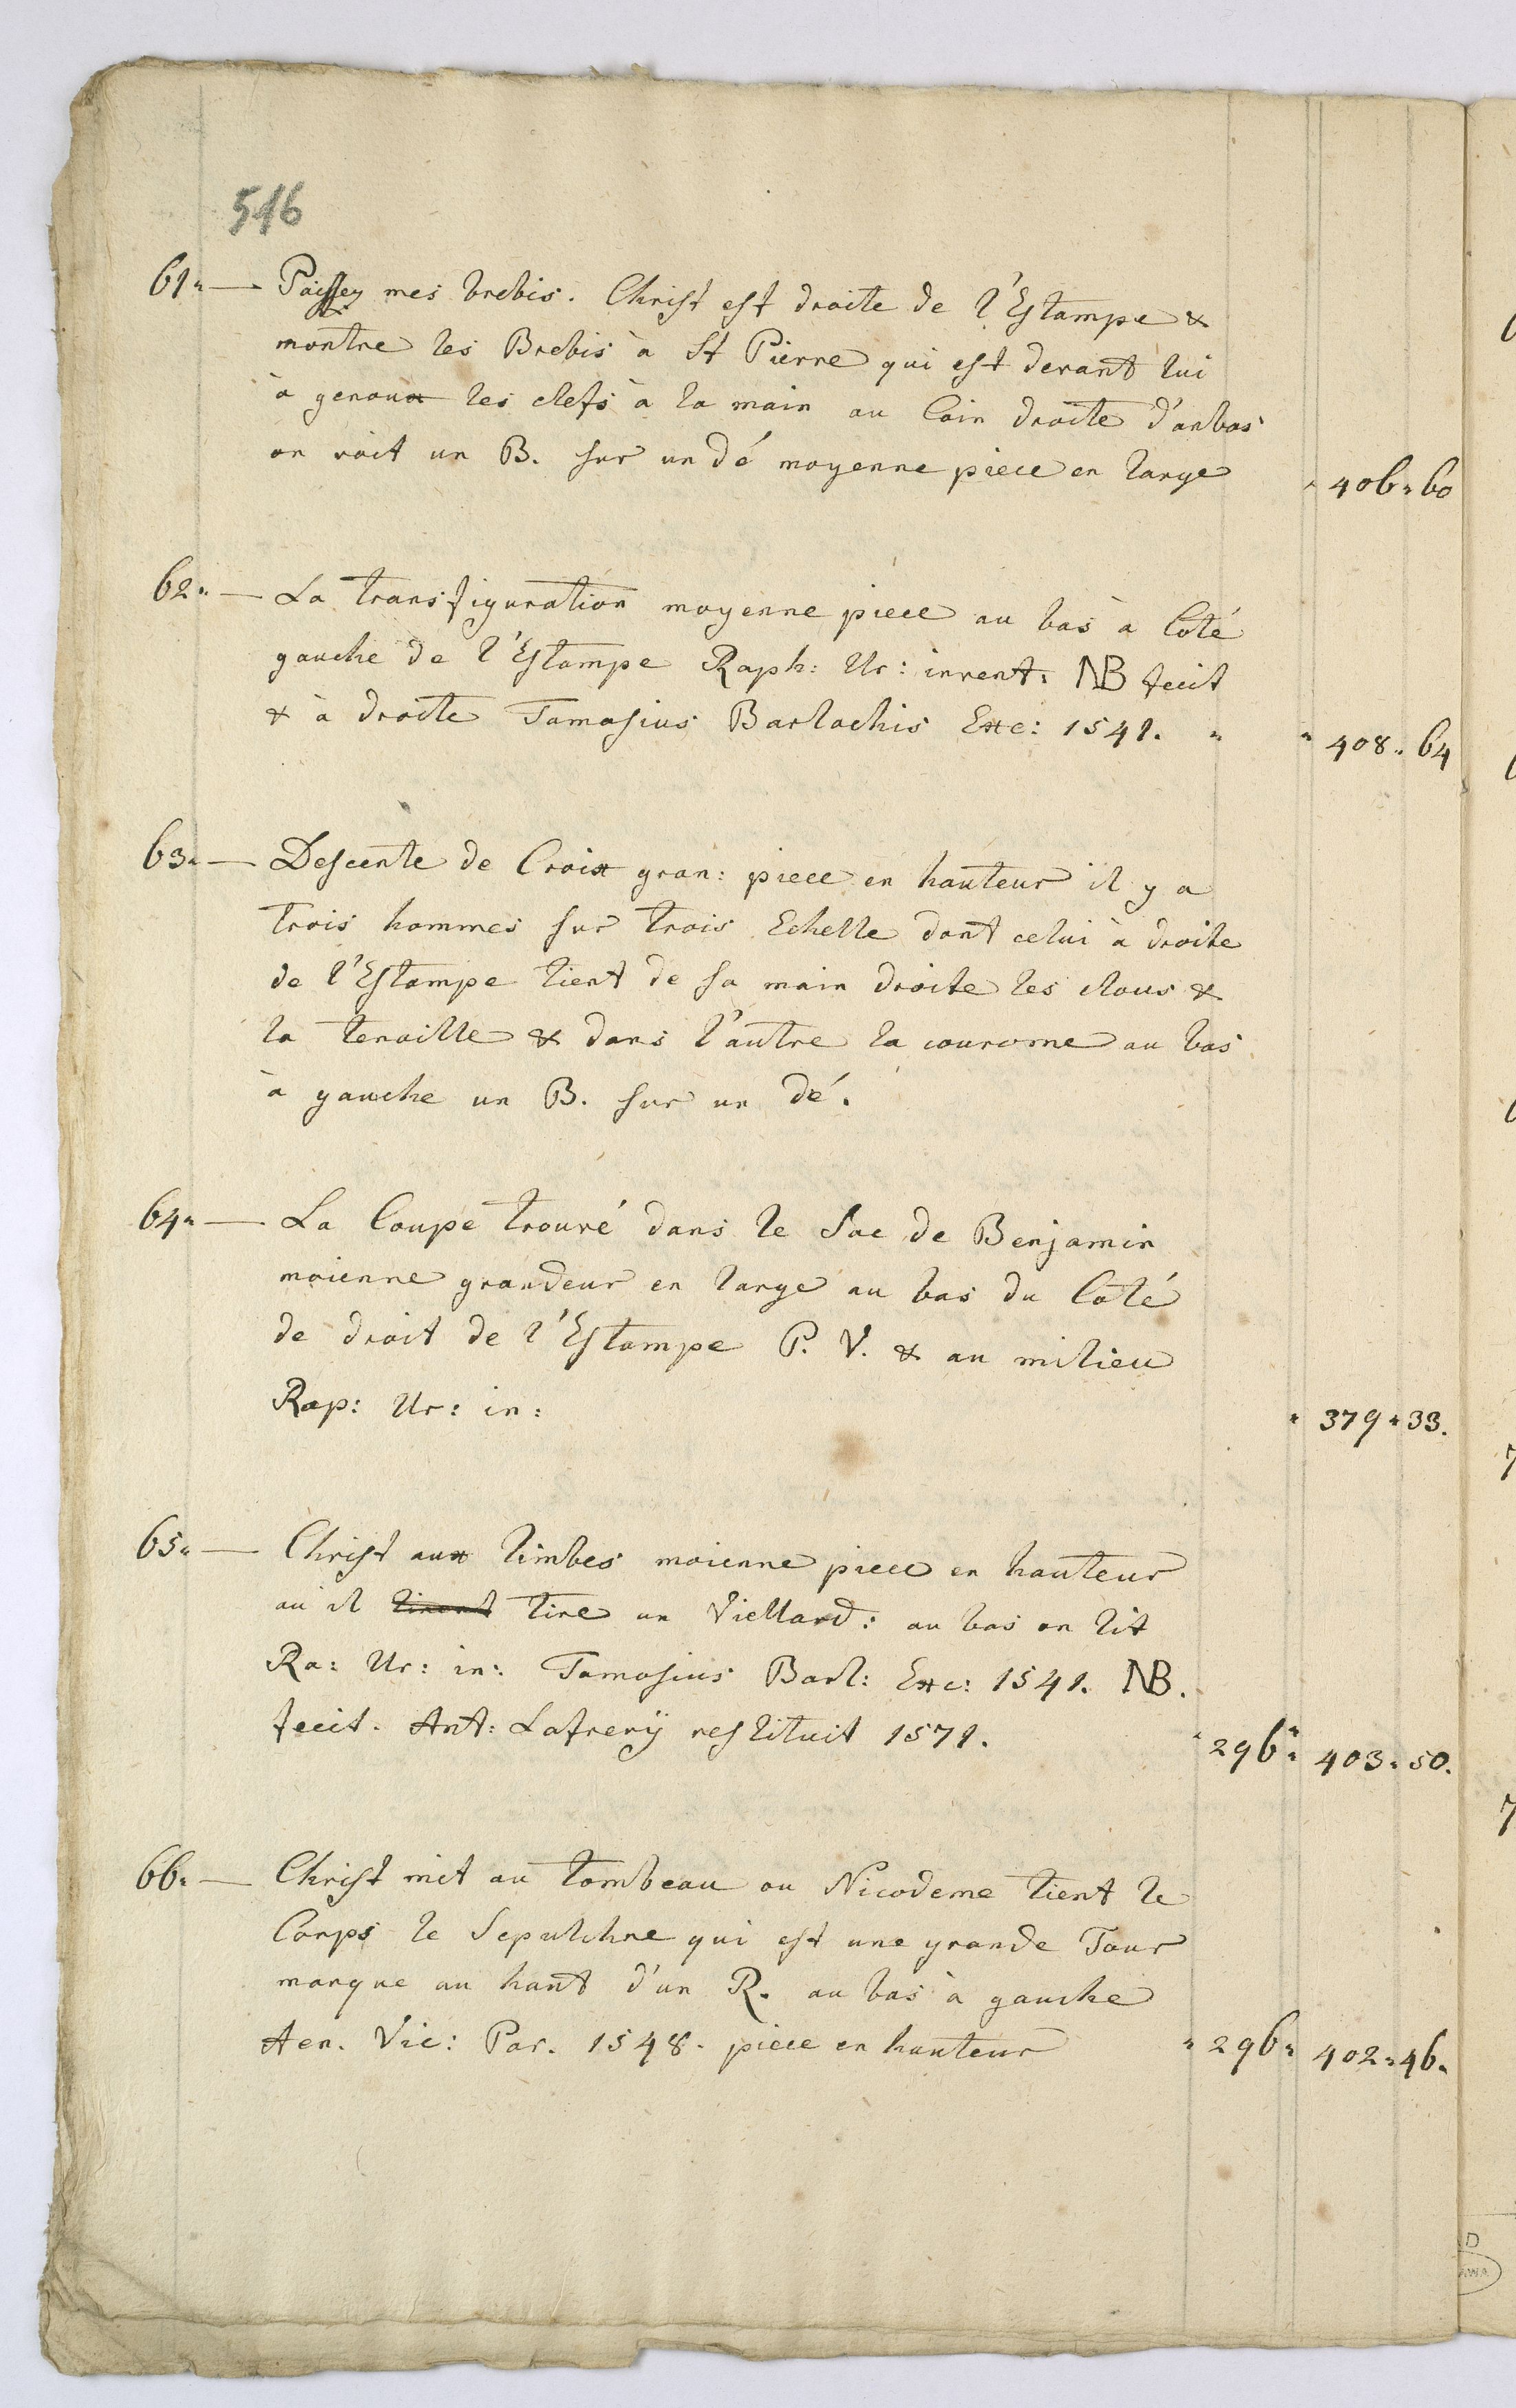 516
61" — Paissey mes brebis. Christ est droite de l'Estampe &
montre les Brebis à St Pierre qui est devant lui
à genoux les clefs à la main au Coin droite d'anbas
on voit un B. sur un dé moyenne piece en large " 406 " 60
62" — La transfiguration moyenne piece au bas à Coté
gauche de l'Estampe Raph: Ur: invent: NB fecit
& à droite Tomasius Barlachis Exc: 1541. " " 408 " 64
63" — Descente de Croix gran: piece en hauteur il y a
trois hommes sur trois Echelle dont celui à droite
de l'Estampe tient de sa main droite les clous &
la tenaille & dans l'autre la couronne au bas
à gauche un B. sur un dé.
64" — La Coupe trouvé dans le Sac de Benjamin
moienne grandeur en large au bas du Coté
de droit de l'Estampe P. V. & au milieu
Rap: Ur: in: " 379 " 33.
65" — Christ aux limbes moienne piece en hauteur
au il tirant tire un Viellard: au bas on lit
Ra: Ur: in: Tomasius Barl: Exc: 1541. NB.
fecit. Ant: Lafrerÿ restituit 1571. " 296 " 403 " 50.
66" — Christ mit au tombeau ou Nicodeme tient le
Corps le Sepulchre qui est une grande Tour
marque au haut d'un R. au bas à gauche
Aen. Vic: Par. 1548. piece en hauteur " 296 " 402 " 46"